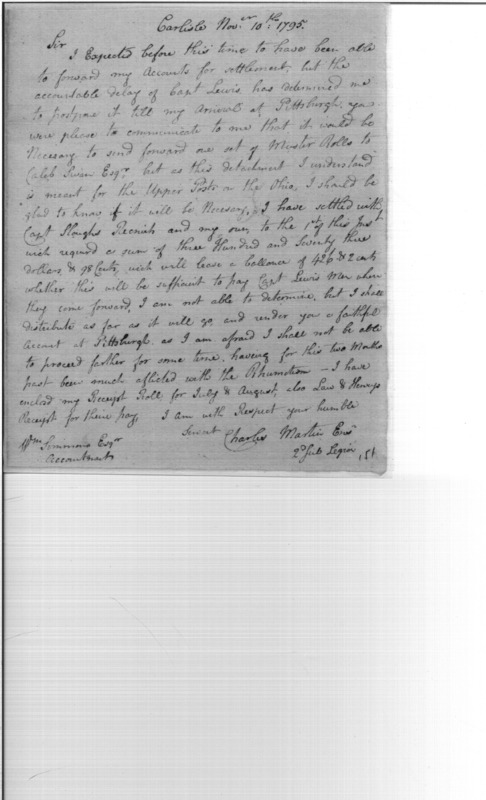 Carlisle Nov.er 10.th 1795.
Sir
I Expected before this time to have been able
to forward my Accounts for settlement, but the
accountable delay of Capt Lewis, has determined me
to postpone it till my Arrival at Pittsburgh, you
were please to communicate to me that it would be
Necesary to send forward one set of Muster Rolls to
Caleb Swan Esqr. but as this detachment I understand
is meant for the Upper Posts on the Ohio, I should be
glad to know if it will be Necesary, I have settled with
Capt Sloughs Recruits and my own, to the 1st of this Inst
wich required a sum of three Hundred and Seventy three
dollars & 98 Cents, wich will leave a ballance of 426 & 2 cents
whether this will be suffitient to pay Capt Lewis Men when
they come forward, I am not able to determine, but I shall
distribute as far as it will go and render you a faithfull
Account at Pittsburgh, as I am afraid I shall not be able
to proceed farther for some time, having for this two Months
past been much aflicted with the Rhumatism - I have
enclosd my Receipt Roll for July & August, also Law & Henrys
Receipt for their pay, I am with Respect your humble
Servt Charles Martin Ens
2d Sub Legion
Wm Simmons Esqr
Accountant